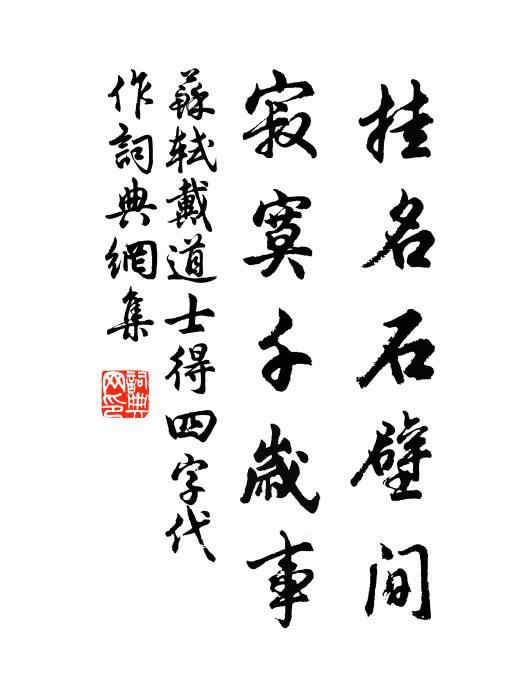 挂名石壁间
寂寞千歲事
蘇軾戴道士得四字代
作詞典網集
詞典网印